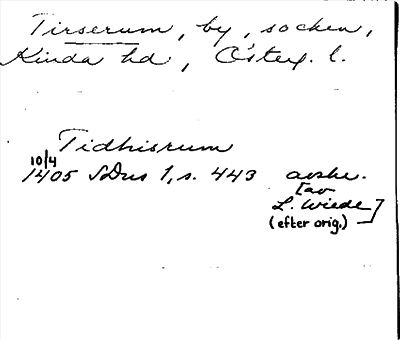 Tirserum, by, socken,
Kinda hd, Österg. l.
Tidhisrum
10/4
1405 SDns 1, s. 443 avskr.
[av
L. Wiede]
(efter orig.)